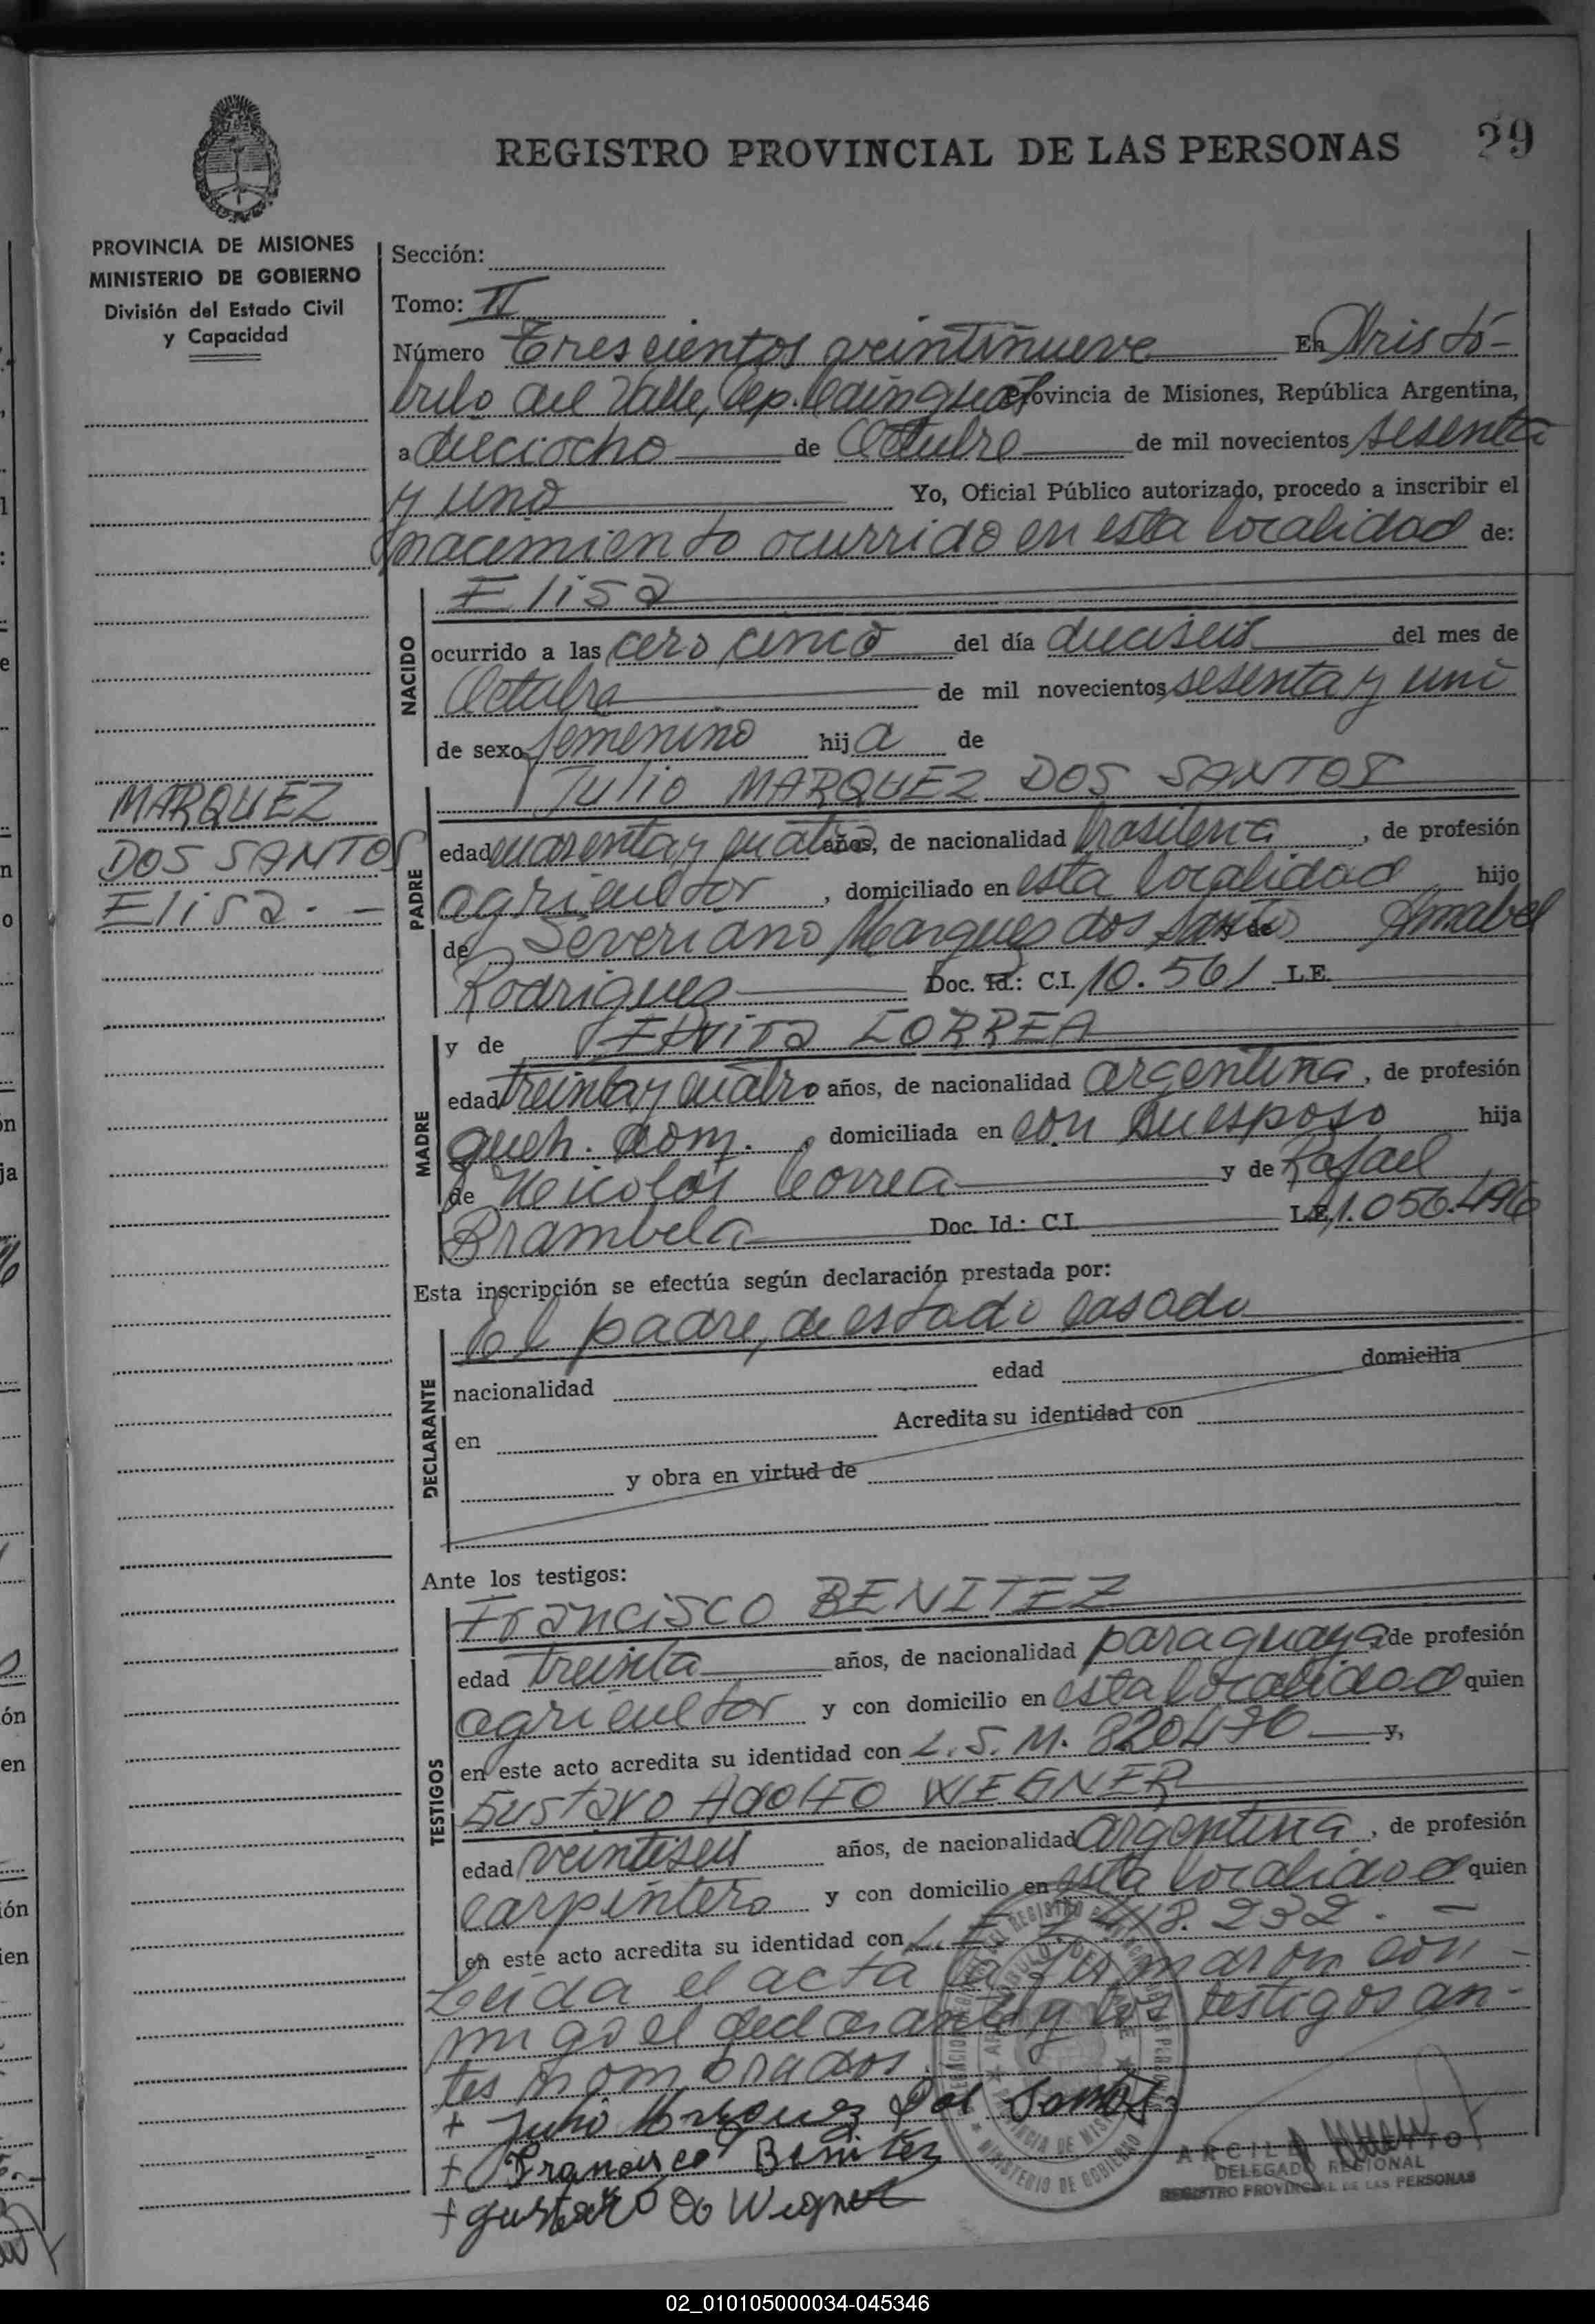 REGISTRO PROVINCIAL DE LAS PERSONAS 29
PROVINCIA DE MISIONES
MINISTERIO DE GOBIERNO
División del Estado Civil
y Capacidad
MARQUEZ
DOS SANTOS
Elisa. -
Sección:
Tomo: II
Número Trescientos veintinueve En Aristó-
bulo del Valle, Dep. Cainguás Provincia de Misiones, República Argentina,
a dieciocho de Octubre de mil novecientos sesenta
y uno Yo, Oficial Público autorizado, procedo a inscribir el
nacimiento ocurrido en esta localidad de:
NACIDO
Elisa
ocurrido a las cero cinco del día dieciseis del mes de
Octubre de mil novecientos sesenta y uno
de sexo femenino hija de
PADRE
Julio MARQUEZ DOS SANTOS
edad cuarenta y cuatro años, de nacionalidad brasilena, de profesión
agricultor, domiciliado en esta localidad hijo
de Severiano Marques dos Santos y de Amabel
Rodrigues Doc. Id.: C.I. 10.561 L.E.
MADRE
y de CORREA
edad treinta y cuatro años, de nacionalidad argentina, de profesión
queh. dom., domiciliada en con su esposo hija
de Nicolás Correa y de Rafael
Brambela Doc. Id.: C.I. L.E. 1.056.496
Esta inscripción se efectúa según declaración prestada por:
DECLARANTE
El padre, de estado casado
nacionalidad edad domicilia
en Acredita su identidad con
y obra en virtud de
Ante los testigos:
TESTIGOS
Francisco BENITEZ
edad treinta años, de nacionalidad paraguaya de profesión
agricultor y con domicilio en esta localidad quien
en este acto acredita su identidad con L.S.M. 820476 y,
Gustavo Adolfo WEGNER
edad veintiseis años, de nacionalidad argentina, de profesión
carpintero y con domicilio en esta localidad quien
en este acto acredita su identidad con L.E. 7.418.232. -
Leida el acta la firmaron con-
migo el declarante y los testigos an-
tes nombrados.
+ Julio Marquez Dos Santos
+ Francisco Benitez
+ Gustavo Ado Wegner
DELEGADO REGIONAL
REGISTRO PROVINCIAL DE LAS PERSONAS
02_010105000034-045346